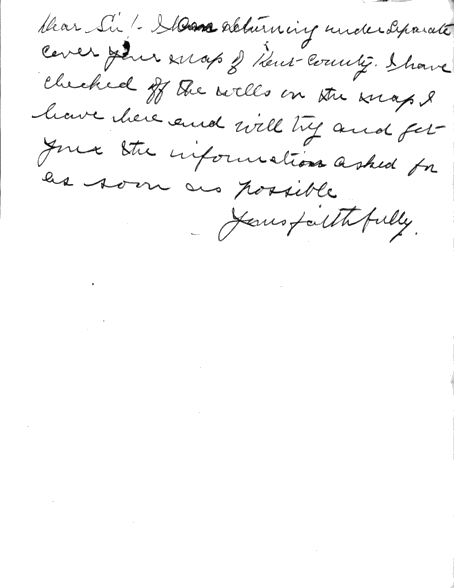 Dear Sir!- I am returning under separate
cover your map of Kent County. I have
checked off the wells on the map I
have here and will try and get
you the information asked for
as soon as possible
Yours faithfully,